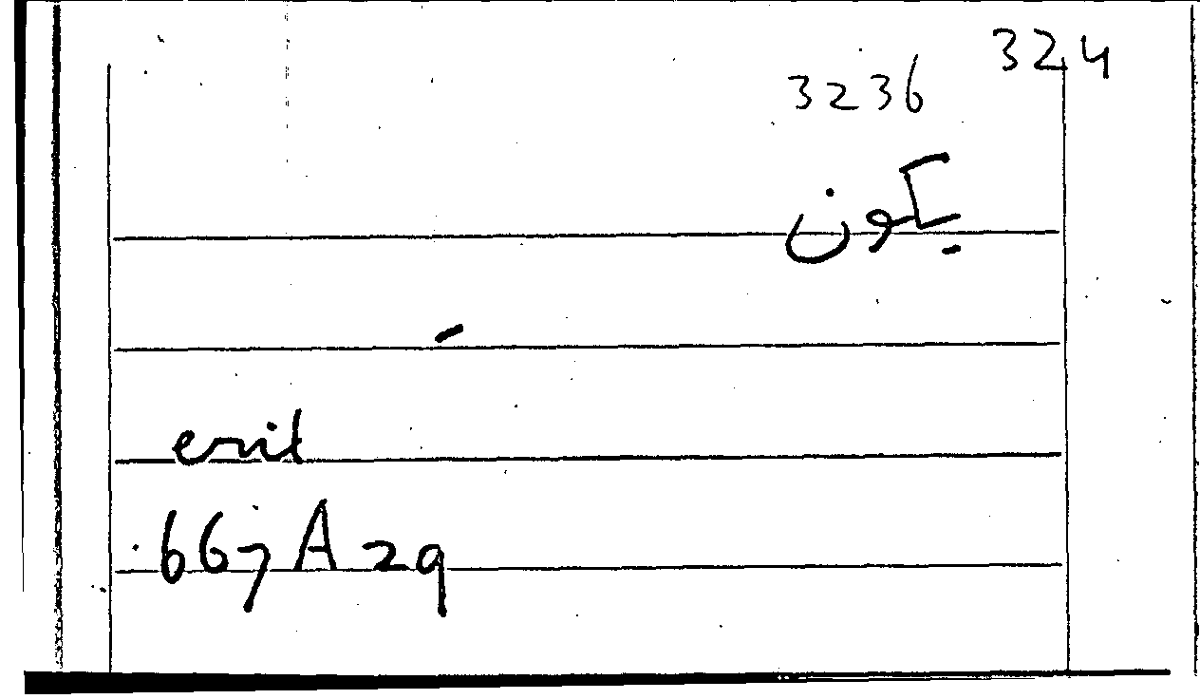 324
3236
يكون
667A29